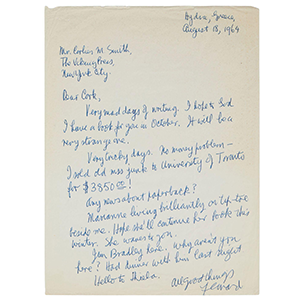 Hydra, Greece,
August 13, 1964
Mr. Corlies M. Smith,
The Viking Press,
New York City.
Dear Cork,
Very mad days of writing. I hope to God
I have a book for you in October. It will be a
very strange one.
Very lucky days. No money problem —
I sold old mss junk to University of Toronto
for $3850.00!
Any news about paperback?
Marianne living brilliantly on tip-toe
beside me. Hope she'll continue her book this
winter. She waves to you.
Jim Bradley here. Why aren't you
here? Had dinner with him last night
Hello to Sheila.
All good things
Leonard